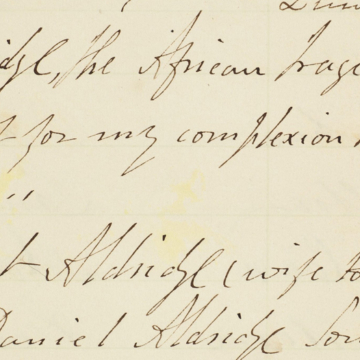 idge, the African trage
t for my complexion
"
t Aldridge (wife to
Daniel Aldridge Son